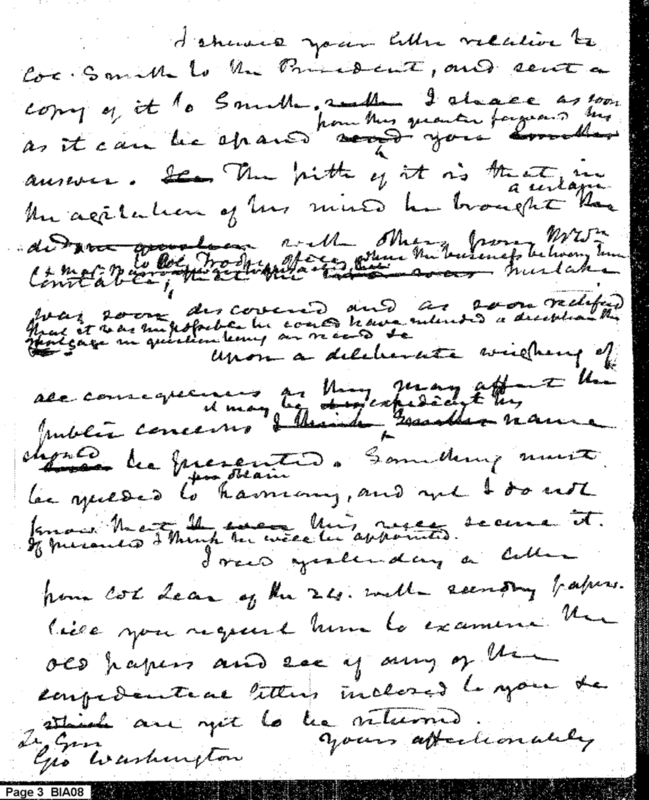 I shewed your letter relative to
Col. Smith to the President, and sent a
copy of it to Smith. I shall as soon
from this quarter forward his
as it can be spared send you Smiths
answer. The pith of it is that, in
a certain
the agitation of his mind he brought the
deed with others from
to Col. Troops office where the business between them
Constable, that the mistake
was soon discovered and as soon rectified
that it was impossible he could have intended a deception the
mortgage in question being on record &c
Upon a deliberate weighing of
all consequences as they may affect the
it may be expedient his
public concerns I think Smiths name
should
be presented. Something must
to obtain
be yielded to harmony, and yet I do not
know that it even this will secure it.
If presented I think he will be appointed.
I recd yesterday a letter
from Col Lear of the 24. with sundry papers.
Will you request him to examine the
old papers and see if any of the
confidential letters inclosed to you &c
which are yet to be returned.
Yours affectionately
Lt Gen
Geo Washington
Page 3 BIA08